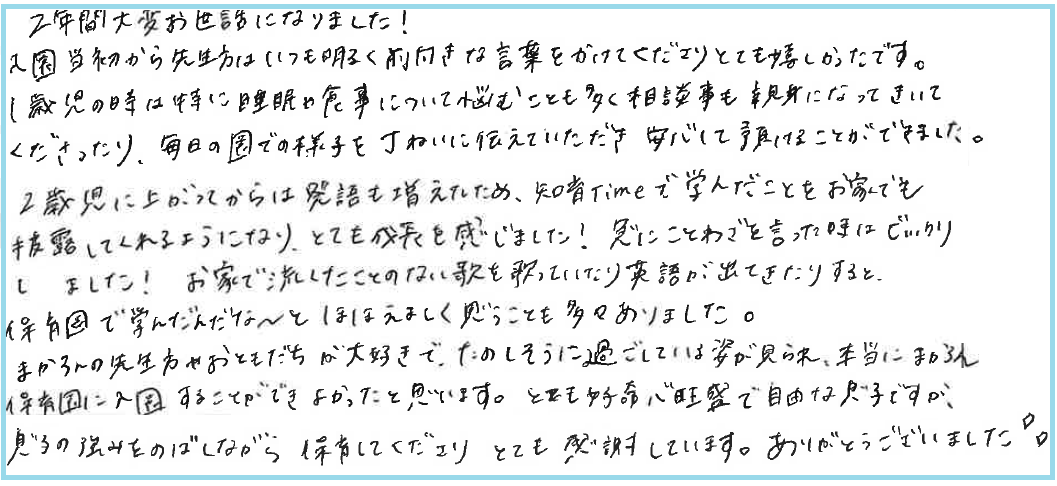 2年間大変お世話になりました!
入園当初から先生方はいつも明るく前向きな言葉をかけてくださりとても嬉しかったです。
1歳児の時は特に睡眠や食事について悩むことも多く相談事も親身になってきいて
くださったり、毎日の園での様子を丁ねいに伝えていただき安心して預けることができました。
2歳児に上がってからは発語も増えたため、知育Timeで学んだことをお家でも
披露してくれるようになり、とても成長を感じました!急にことわざを言った時はビックリ
しました!お家で流したことのない歌を歌っていたり英語が出てきたりすると、
保育園で学んだんだな〜とほほえましく思うことも多々ありました。
まかろんの先生方やおともだちが大好きで、たのしそうに過ごしている姿が見られ、本当にまかろん
保育園に入園することができよかったと思います。とても好奇心旺盛で自由な息子ですが、
息子の強みをのばしながら保育してくださりとても感謝しています。ありがとうございました